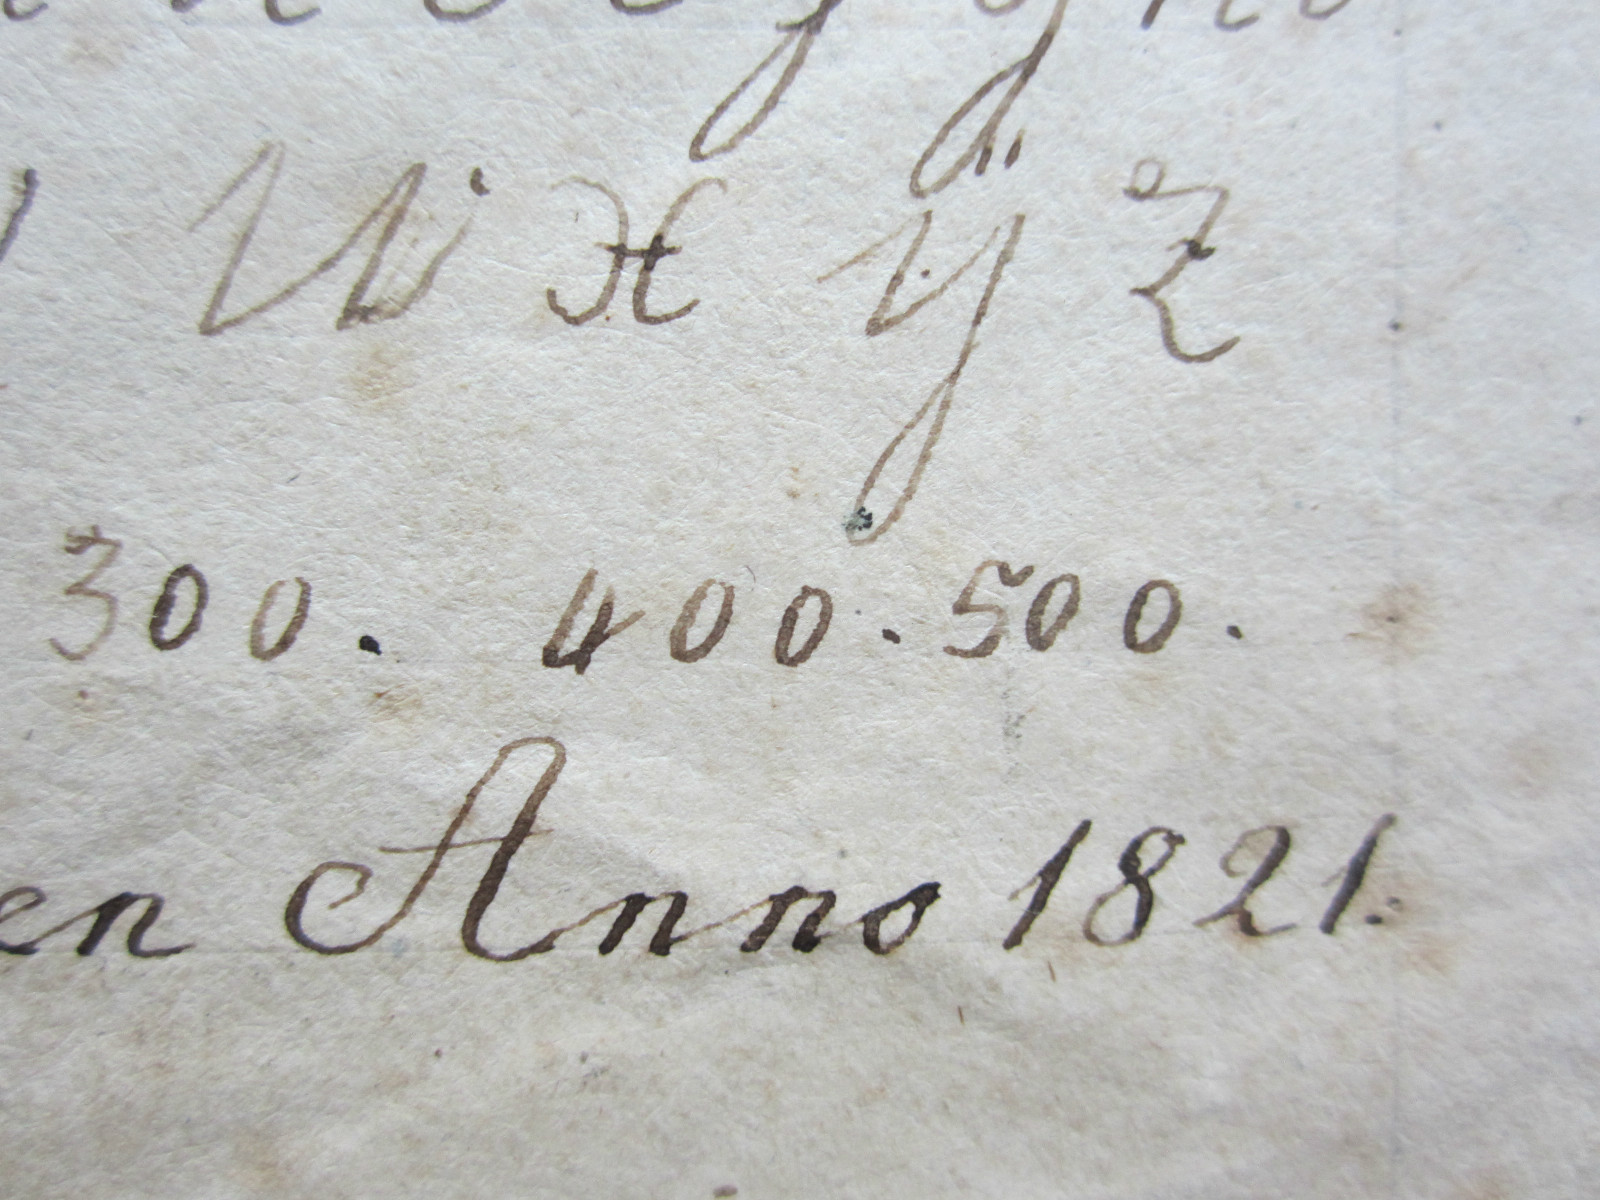 W X Ÿ Z
300. 400. 500.
en Anno 1821.